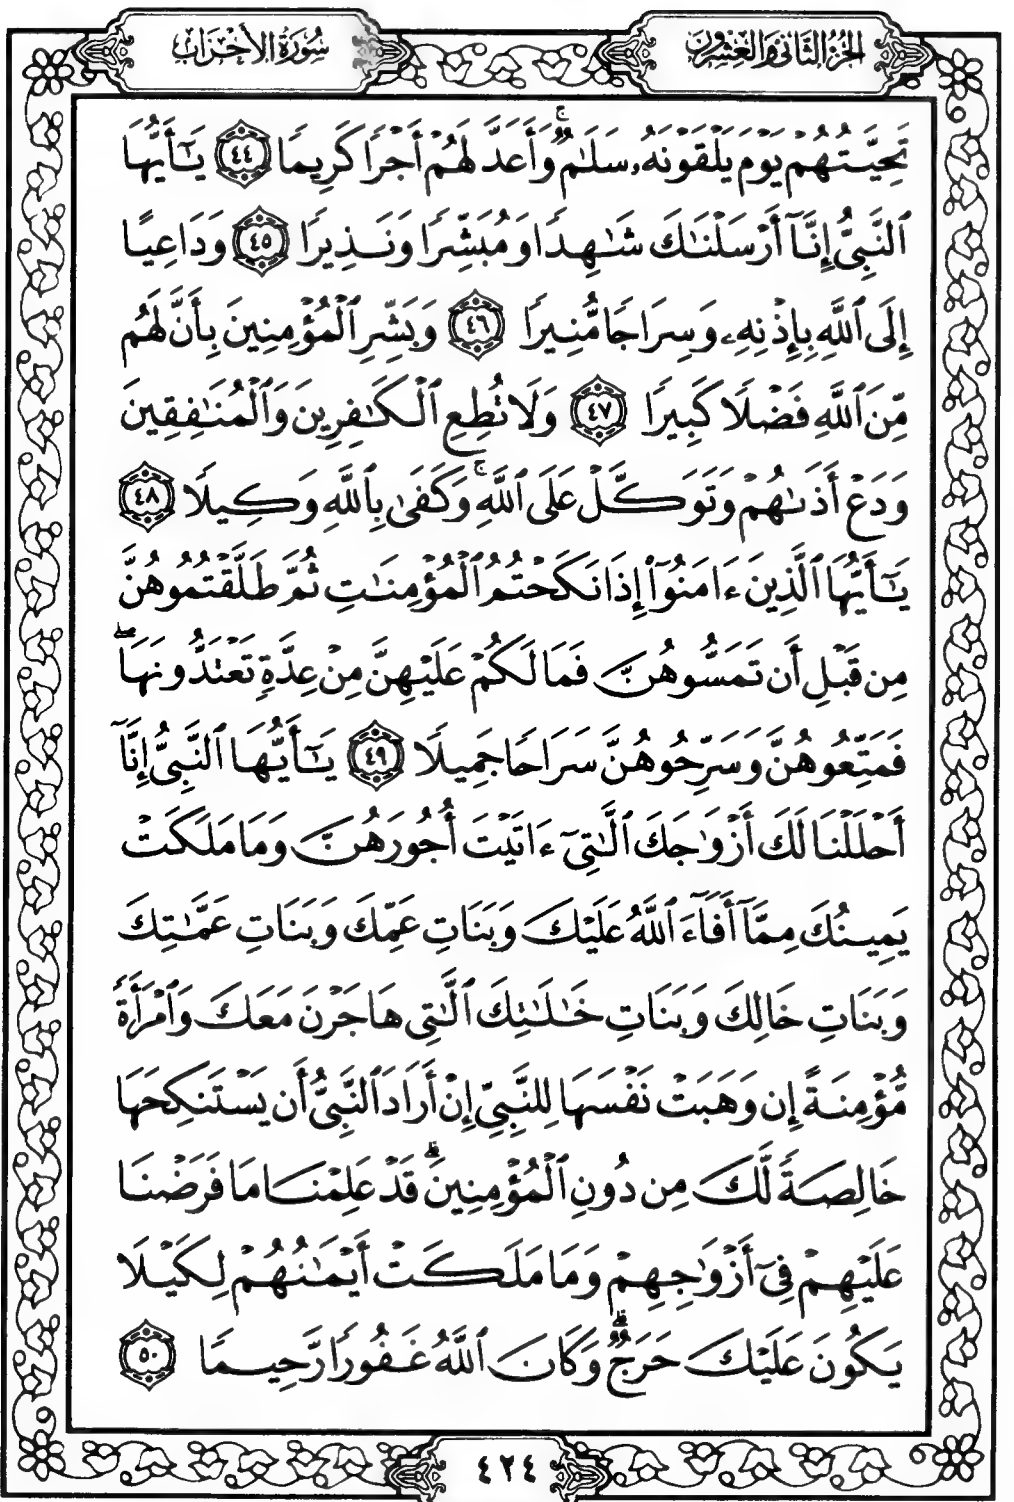 الجُزْءُ الثَّانِي وَالعِشْرُونَ
سُورَةُ الأَحْزَاب
تَحِيَّتُهُمْ يَوْمَ يَلْقَوْنَهُۥ سَلَٰمٌۚ وَأَعَدَّ لَهُمْ أَجْرًا كَرِيمًا ٤٤ يَٰٓأَيُّهَا
ٱلنَّبِىُّ إِنَّآ أَرْسَلْنَٰكَ شَٰهِدًا وَمُبَشِّرًا وَنَذِيرًا ٤٥ وَدَاعِيًا
إِلَى ٱللَّهِ بِإِذْنِهِۦ وَسِرَاجًا مُّنِيرًا ٤٦ وَبَشِّرِ ٱلْمُؤْمِنِينَ بِأَنَّ لَهُم
مِّنَ ٱللَّهِ فَضْلًا كَبِيرًا ٤٧ وَلَا تُطِعِ ٱلْكَٰفِرِينَ وَٱلْمُنَٰفِقِينَ
وَدَعْ أَذَىٰهُمْ وَتَوَكَّلْ عَلَى ٱللَّهِۚ وَكَفَىٰ بِٱللَّهِ وَكِيلًا ٤٨
يَٰٓأَيُّهَا ٱلَّذِينَ ءَامَنُوٓا۟ إِذَا نَكَحْتُمُ ٱلْمُؤْمِنَٰتِ ثُمَّ طَلَّقْتُمُوهُنَّ
مِن قَبْلِ أَن تَمَسُّوهُنَّ فَمَا لَكُمْ عَلَيْهِنَّ مِنْ عِدَّةٍ تَعْتَدُّونَهَاۖ
فَمَتِّعُوهُنَّ وَسَرِّحُوهُنَّ سَرَاحًا جَمِيلًا ٤٩ يَٰٓأَيُّهَا ٱلنَّبِىُّ إِنَّآ
أَحْلَلْنَا لَكَ أَزْوَٰجَكَ ٱلَّٰتِىٓ ءَاتَيْتَ أُجُورَهُنَّ وَمَا مَلَكَتْ
يَمِينُكَ مِمَّآ أَفَآءَ ٱللَّهُ عَلَيْكَ وَبَنَاتِ عَمِّكَ وَبَنَاتِ عَمَّٰتِكَ
وَبَنَاتِ خَالِكَ وَبَنَاتِ خَٰلَٰتِكَ ٱلَّٰتِى هَاجَرْنَ مَعَكَ وَٱمْرَأَةً
مُّؤْمِنَةً إِن وَهَبَتْ نَفْسَهَا لِلنَّبِىِّ إِنْ أَرَادَ ٱلنَّبِىُّ أَن يَسْتَنكِحَهَا
خَالِصَةً لَّكَ مِن دُونِ ٱلْمُؤْمِنِينَۗ قَدْ عَلِمْنَا مَا فَرَضْنَا
عَلَيْهِمْ فِىٓ أَزْوَٰجِهِمْ وَمَا مَلَكَتْ أَيْمَٰنُهُمْ لِكَيْلَا
يَكُونَ عَلَيْكَ حَرَجٌۗ وَكَانَ ٱللَّهُ غَفُورًا رَّحِيمًا ٥٠
٤٢٤